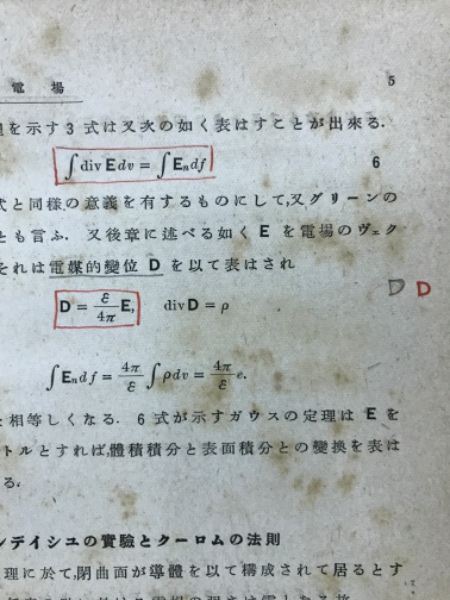 電場 5
を示す3式は又次の如く表はすことが出來る.
∫div E dv = ∫E_n df 6
式と同樣の意義を有するものにして,又グリーンの
とも言ふ. 又後章に述べる如く E を電場のヴェク
それは電媒的變位 D を以て表はされ
D D
D = ε/4π E, div D = ρ
∫E_n df = 4π/ε ∫ρdv = 4π/ε e.
と相等しくなる. 6 式が示すガウスの定理は E を
トルとすれば,體積積分と表面積分との變換を表は
る.
ンデイシユの實驗とクーロムの法則
理に於て,閉曲面が導體を以て構成されて居るとす